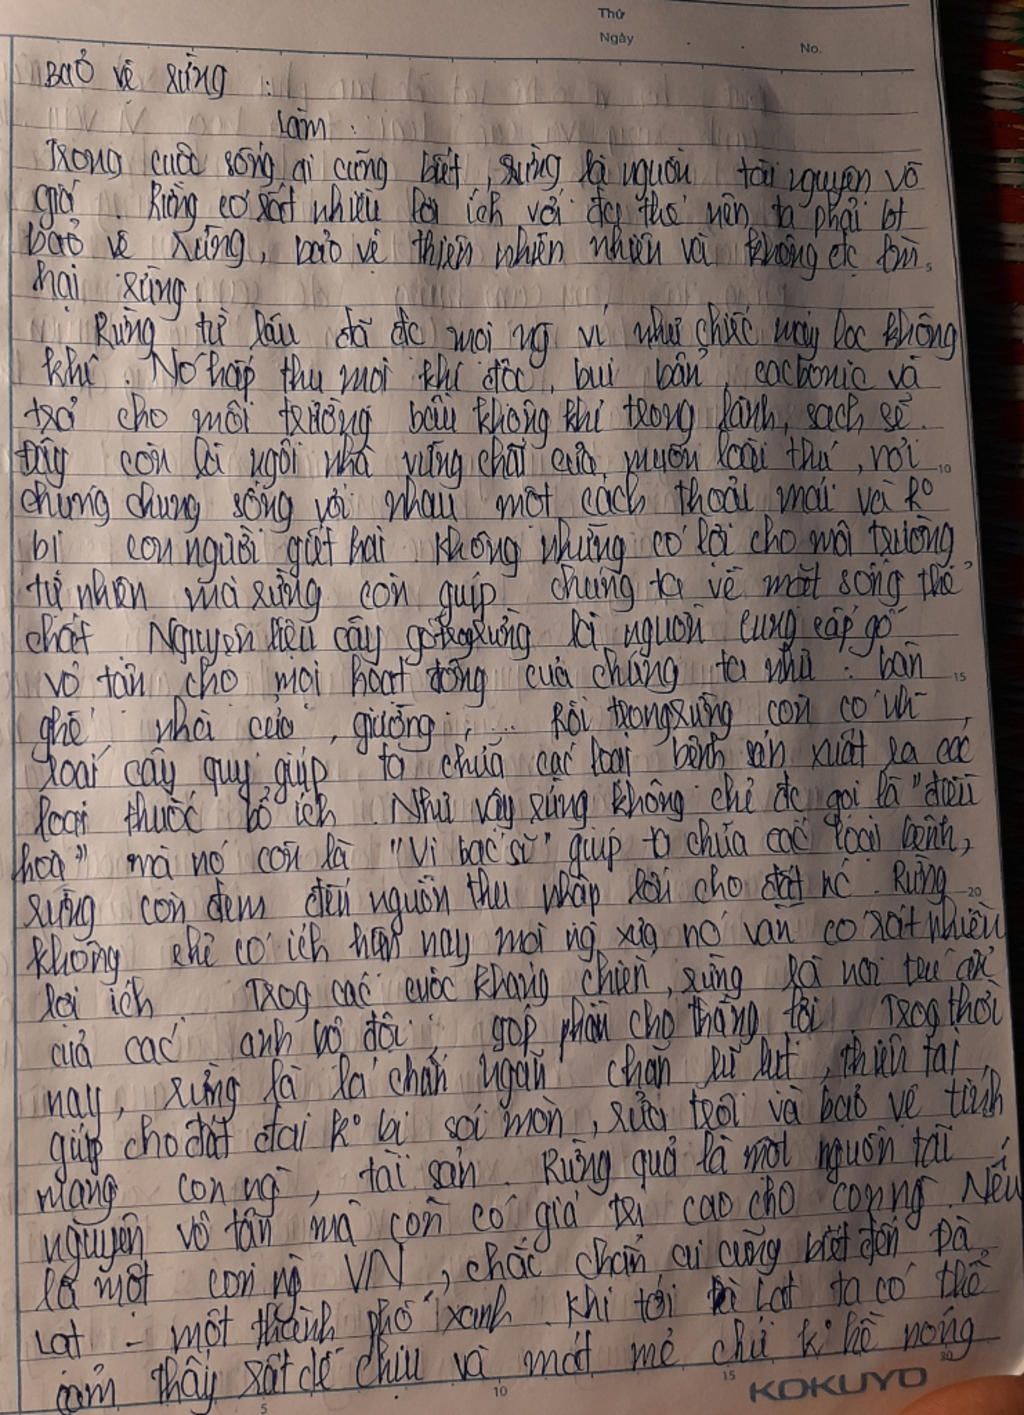 Thứ
Ngày
No.
Bảo vệ rừng :
Làm :
Trong cuộc sống ai cũng biết, rừng là nguồn tài nguyên vô
giá. Rừng có rất nhiều lợi ích với đs, thế nên ta phải bt
bảo vệ rừng, bảo vệ thiên nhiên nhiên và không đc tàn
5
hại rừng.
Rừng từ lâu đã đc mọi ng ví như chiếc máy lọc không
khí. Nó hấp thụ mọi khí độc, bụi bẩn, cacbonic và
trả cho môi trường bầu không khí trong lành, sạch sẽ.
Đây còn là ngôi nhà vững chãi của muôn loài thú, nơi
10
chúng chung sống với nhau một cách thoải mái và ko
bị con người giết hại. Không những có lợi cho môi trường
tự nhiên mà rừng còn giúp chúng ta về mặt sống thể
chất. Nguyên liệu cây gỗ trog rừng là nguồn cung cấp gỗ
vô tận cho mọi hoạt động của chúng ta như : bàn
15
ghế, nhà cửa, giường, ... Rồi trong rừng còn có
loại cây quý giúp ta chữa các loại bệnh sản xuất ra các
loại thuốc bổ ích. Như vậy rừng không chỉ đc gọi là "điều
hoà" mà nó còn là "Vị bác sĩ" giúp ta chữa các loại bệnh,
rừng còn đem đến nguồn thu nhập lớn cho đất nc. Rừng
20
không chỉ có ích hiện nay mọi ng xưa nó vẫn có rất nhiều
lợi ích. Trog các cuộc kháng chiến, rừng là nơi trú ẩn
của các anh bộ đội, góp phần cho thắng lợi. Trog thời
nay, rừng là lá chắn ngăn chặn lũ lụt, thiên tai,
giúp cho đất đai ko bị sói mòn, rửa trôi và bảo vệ tính
mạng con ng, tài sản. Rừng quả là một nguồn tài
nguyên vô tận mà còn có giá trị cao cho con ng. Nếu
là một con ng VN, chắc chắn ai cũng biết đến Đà
Lạt - một thành phố xanh. Khi tới Đà Lạt ta có thể
cảm thấy rất dễ chịu và mát mẻ chứ ko hề nóng
30
5
10
15
KOKUYO